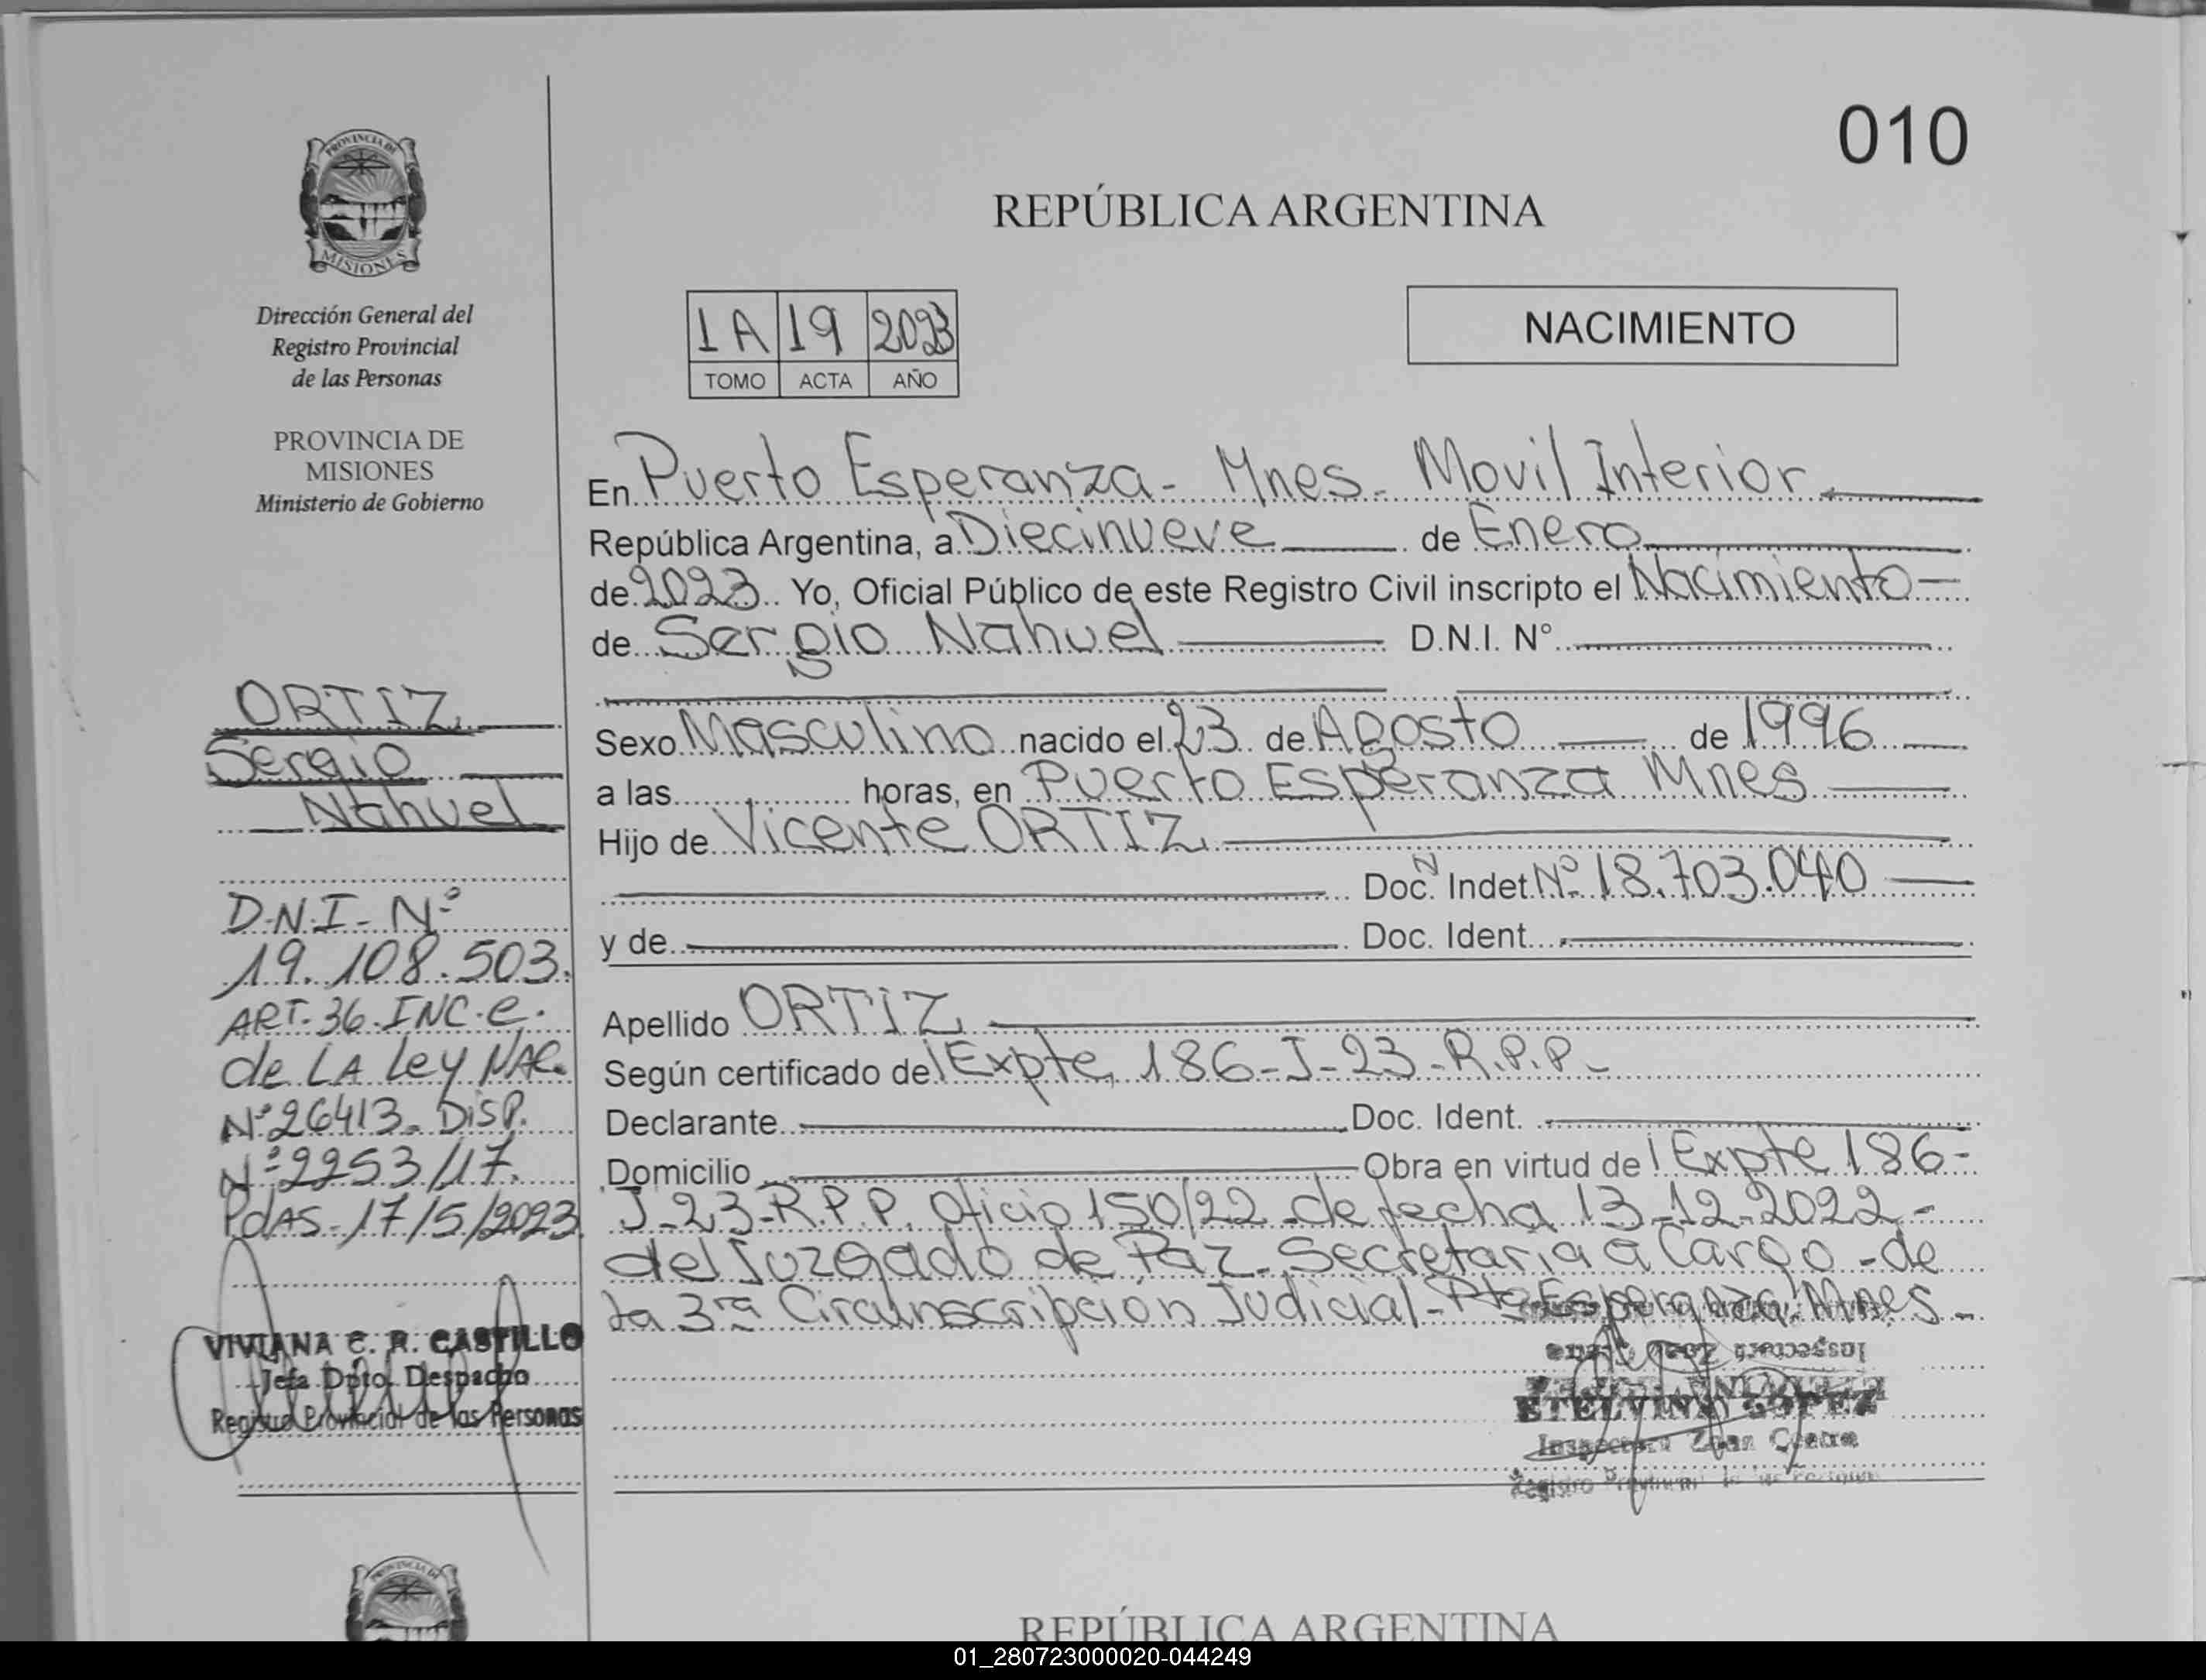 010
PROVINCIA DE
MISIONES
Dirección General del
Registro Provincial
de las Personas
PROVINCIA DE
MISIONES
Ministerio de Gobierno
REPÚBLICA ARGENTINA
1A 19 2023
TOMO ACTA AÑO
NACIMIENTO
En Puerto Esperanza - Mnes - Movil Interior
República Argentina, a Diecinueve de Enero
de 2023. Yo, Oficial Público de este Registro Civil inscripto el Nacimiento
de Sergio Nahuel D.N.I. N°
Sexo Masculino nacido el 23 de Agosto de 1996
a las horas, en Puerto Esperanza Mnes
Hijo de Vicente ORTIZ
Doc. N Indet. Nº 18.703.040
y de Doc. Ident.
Apellido ORTIZ
Según certificado del Expte, 186-J-23-R.P.P.-
Declarante Doc. Ident.
Domicilio Obra en virtud del Expte 186-
J-23-R.P.P. Oficio 150/22 de fecha 13-12-2022-
del Juzgado de Paz - Secretaría a Cargo - de
la 3ra Circunscripción Judicial - Pto Esperanza Mnes -
ORTIZ
Sergio
Nahuel
D.N.I - Nº
19.108.503.
ART. 36. INC. e.
de LA Ley NAC.
Nº 26413. DISP.
Nº 2253/17.
PdAS - 17/5/2023
VIVIANA C. R. CASTILLO
Jefa Dpto. Despacho
Registro Provincial de las Personas
Inspectora Zona Centro
ETELVINA LOPEZ
Inspectora Zona Centro
Registro Provincial de las Personas
PROVINCIA DE
REPÚBLICA ARGENTINA
01_280723000020-044249